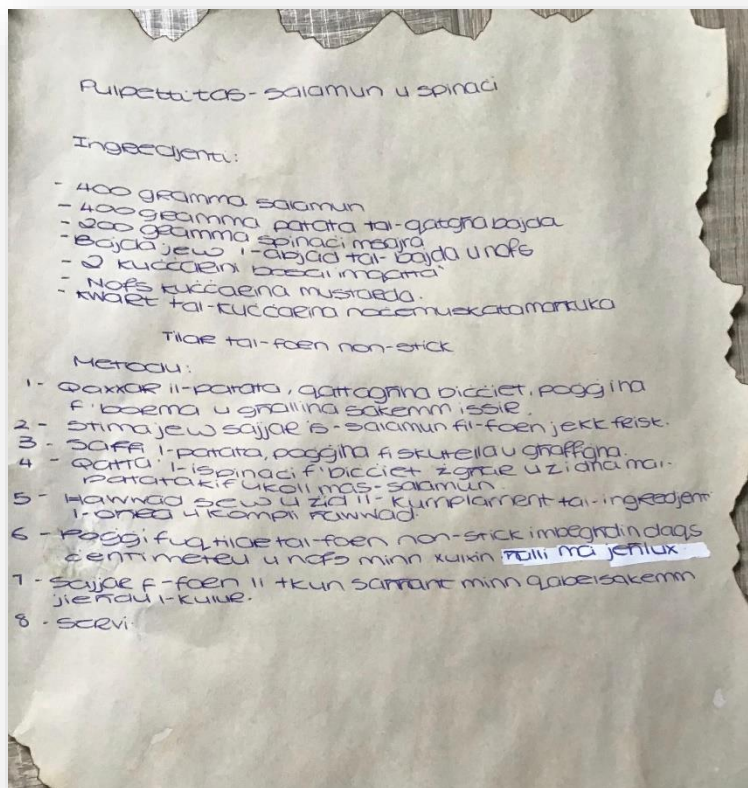 Pulpetti tas-salamun u spinaci
Ingredjenti:
- 400 gramma salamun
- 400 gramma patata tal-qatgħa bajda
- 200 gramma spinaci msajra
- Bajda jew l-abjad tal-bajda u nofs
- 2 kuċċarini basal imqatta'
- Nofs kuċċarina mustarda.
- Kwart tal-kuċċarina noċemuskata maħkuka
Tilar tal-forn non-stick
Metodu:
1- Qaxxar il-patata, qattagħha biċċiet, poġġiha
f'borma u għalliha sakemm issir.
2 - Stima jew sajjar is-salamun fil-forn jekk frisk.
3 - Saffi l-patata, poġġiha fi skutella u għaffiġha.
4 - Qatta' l-ispinaci f'biċċiet żgħar u żidha mal-
patata kif ukoll mas-salamun.
5 - Ħawwad sew u żid il-kumplament tal-ingredjenti
l-oħra u kompli ħawwad.
6 - Poġġi fuq tilar tal-forn non-stick imbagħdin daqs
ċentimetru u nofs minn xulxin ħalli ma jeħlux.
7 - Sajjar f'forn li tkun saħħant minn qabel sakemm
jieħdu l-kulur.
8 - Servi.